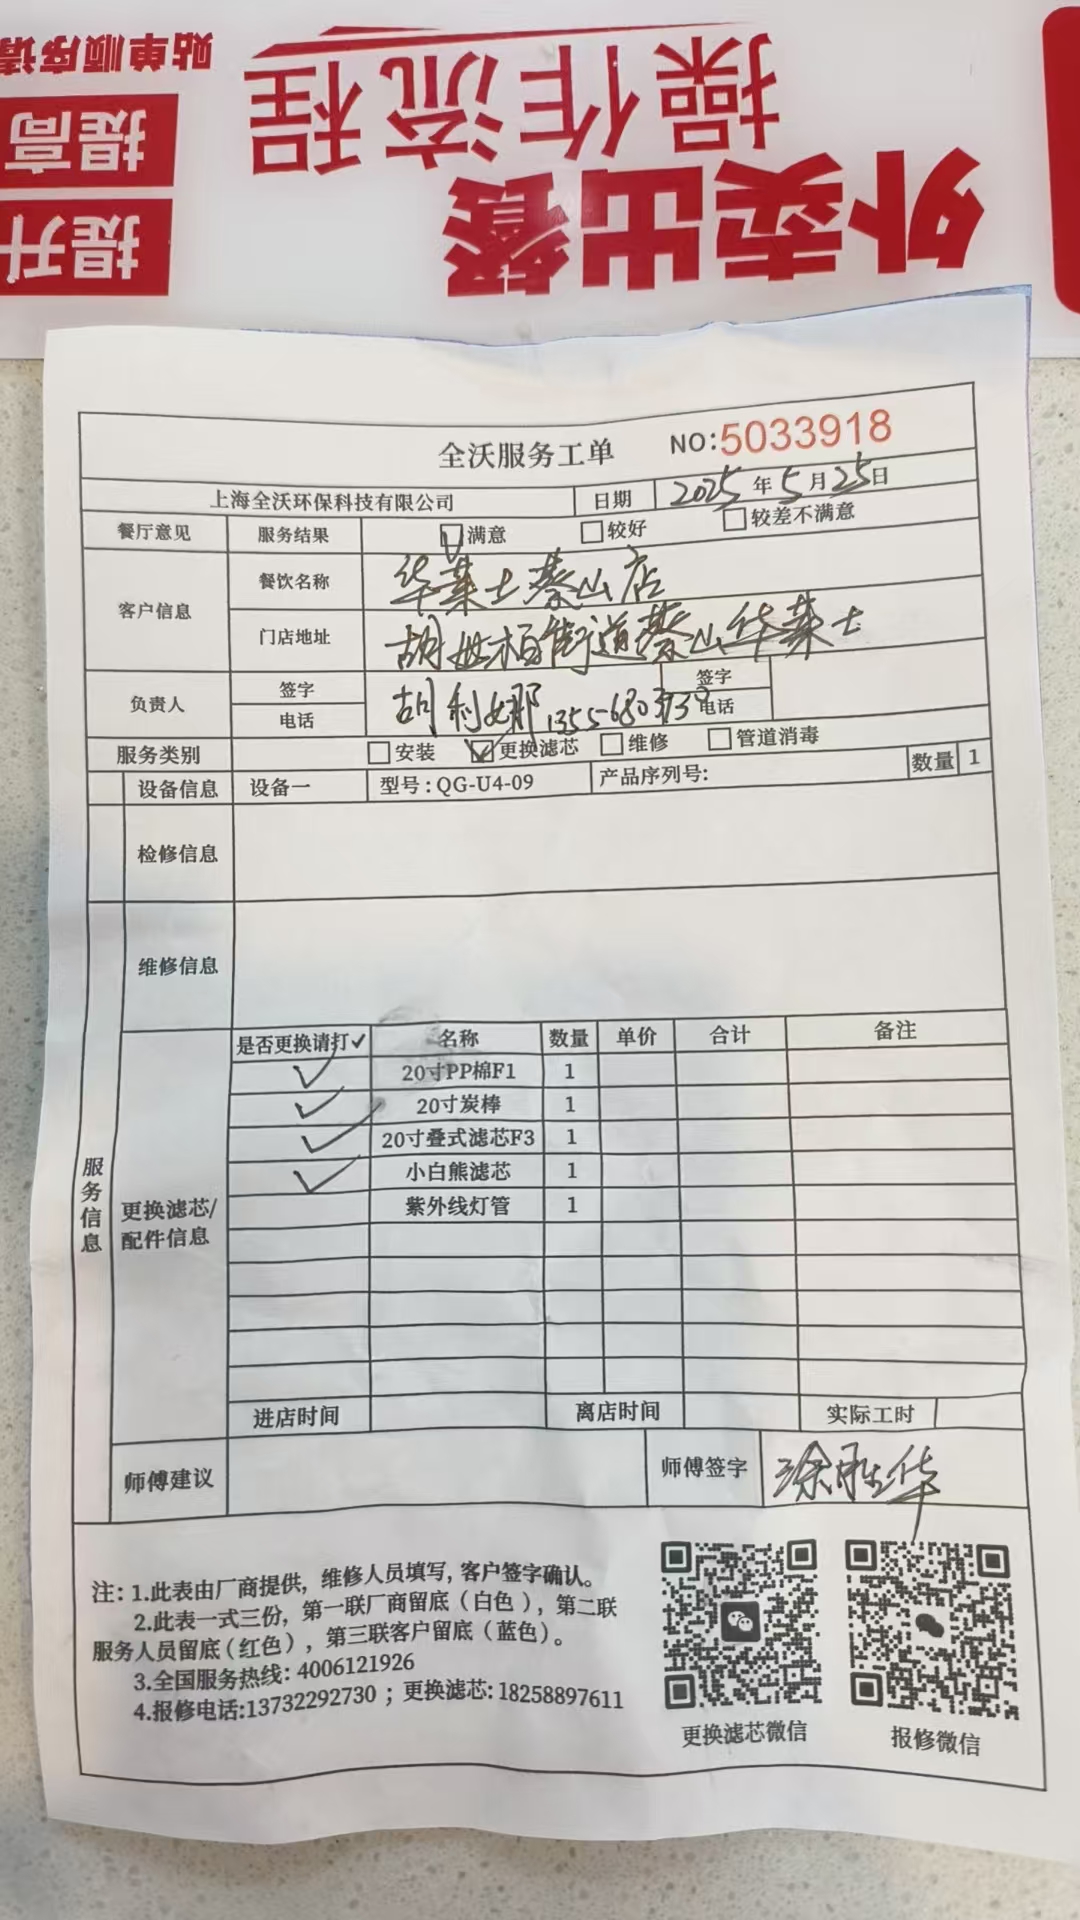 贴单顺序请
操作流程
提高
外卖出餐
提升
全沃服务工单 NO:5033918
上海全沃环保科技有限公司 日期 2025年5月25日
餐厅意见 服务结果 满意 较好 较差不满意
客户信息 餐饮名称 华莱士蔡山店
门店地址 胡世柏街道蔡山华莱士
负责人 签字 胡利娜 签字
电话 电话
服务类别 安装 ✓更换滤芯 维修 管道消毒
设备信息 设备一 型号:QG-U4-09 产品序列号: 数量 1
检修信息
维修信息
服务信息
更换滤芯/
配件信息
是否更换请打✓ 名称 数量 单价 合计 备注
✓ 20寸PP棉F1 1
✓ 20寸炭棒 1
✓ 20寸叠式滤芯F3 1
✓ 小白熊滤芯 1
紫外线灯管 1
进店时间 离店时间 实际工时
师傅建议 师傅签字 涂胜华
注:1.此表由厂商提供,维修人员填写,客户签字确认。
2.此表一式三份,第一联厂商留底(白色),第二联
服务人员留底(红色),第三联客户留底(蓝色)。
3.全国服务热线:4006121926
4.报修电话:13732292730;更换滤芯:18258897611
更换滤芯微信 报修微信